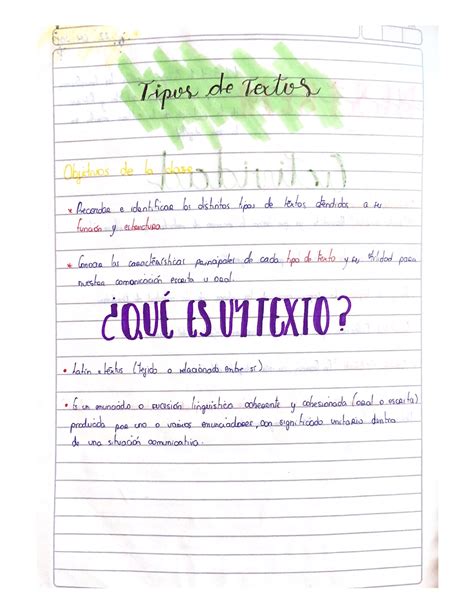 Tipos de Textos
Objetivos de la clase
* Recordar e identificar los distintos tipos de textos atendidos a su
función y estructura
* Conocer las características principales de cada tipo de texto y su utilidad para
nuestra comunicación escrita u oral.
¿QUÉ ES UN TEXTO?
• Latín textus (Tejido o relacionado entre sí)
• Es un enunciado o sucesión lingüística coherente y cohesionada (oral o escrita)
producida por uno o varios enunciadores, con significado unitario dentro
de una situación comunicativa.